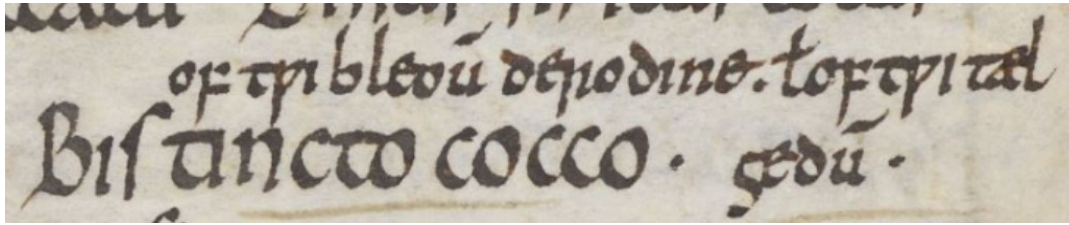 of tƿi bleoū derodine. ł of tƿi tæl
Bis tincto cocco · gedū ·